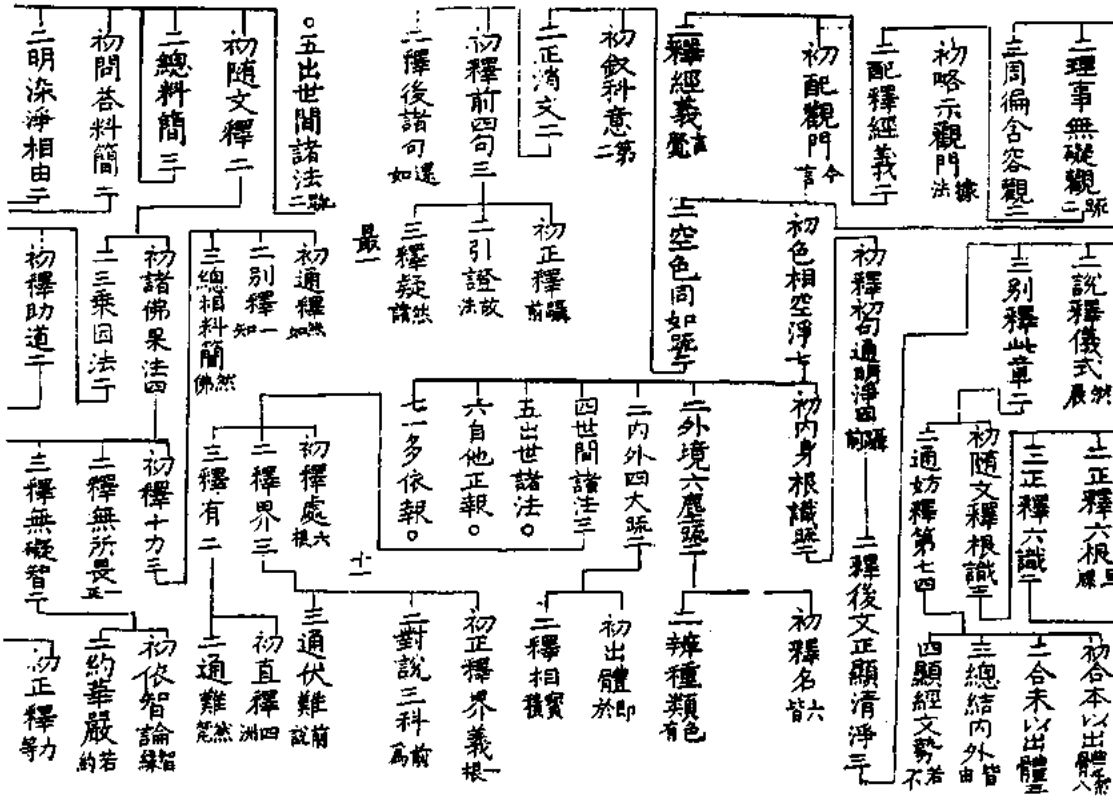 二理事無礙觀疏二
三周徧含容觀二
初略示觀門據法
二配釋經義二
初配觀門今言
二釋經義覺言
初敘科意第二
二正消文二
初釋前四句三
二釋後諸句如還
五出世間諸法疏二
初隨文釋二
二總料簡三
初問荅料簡二
二明染淨相由二
二說釋儀式然展
三別釋此章二
初釋初句通明淨因前躡
初色相空淨七
二空色同如疏二
初正釋前躡
二引證法故
三釋疑諸然
最一
初通釋如然
二別釋知一
三總相料簡佛然
初諸佛果法四
二三乘因法二
初釋助道二
二正釋六根
三正釋六識二
初隨文釋根識三
二通妨釋第七四
二釋後文正顯清淨三
初內身根識疏二
二外境六塵疏二
二內外四大疏二
四世間諸法三
五出世諸法○
六自他正報○
七一多依報○
初釋處根六
二釋界三
三釋有二
初釋十力三
二釋無所畏
三釋無礙智二
初合本以出體
二合末以出體
三總結內外由皆
四顯經文勢不若
初釋名皆六
二辨種類有色
初出體於即
二釋相積實
十一
初正釋界義根一
二對說三科為前
三通伏難說前
初直釋洲四
二通難然
初依智論智
二約華嚴約若
初正釋等力